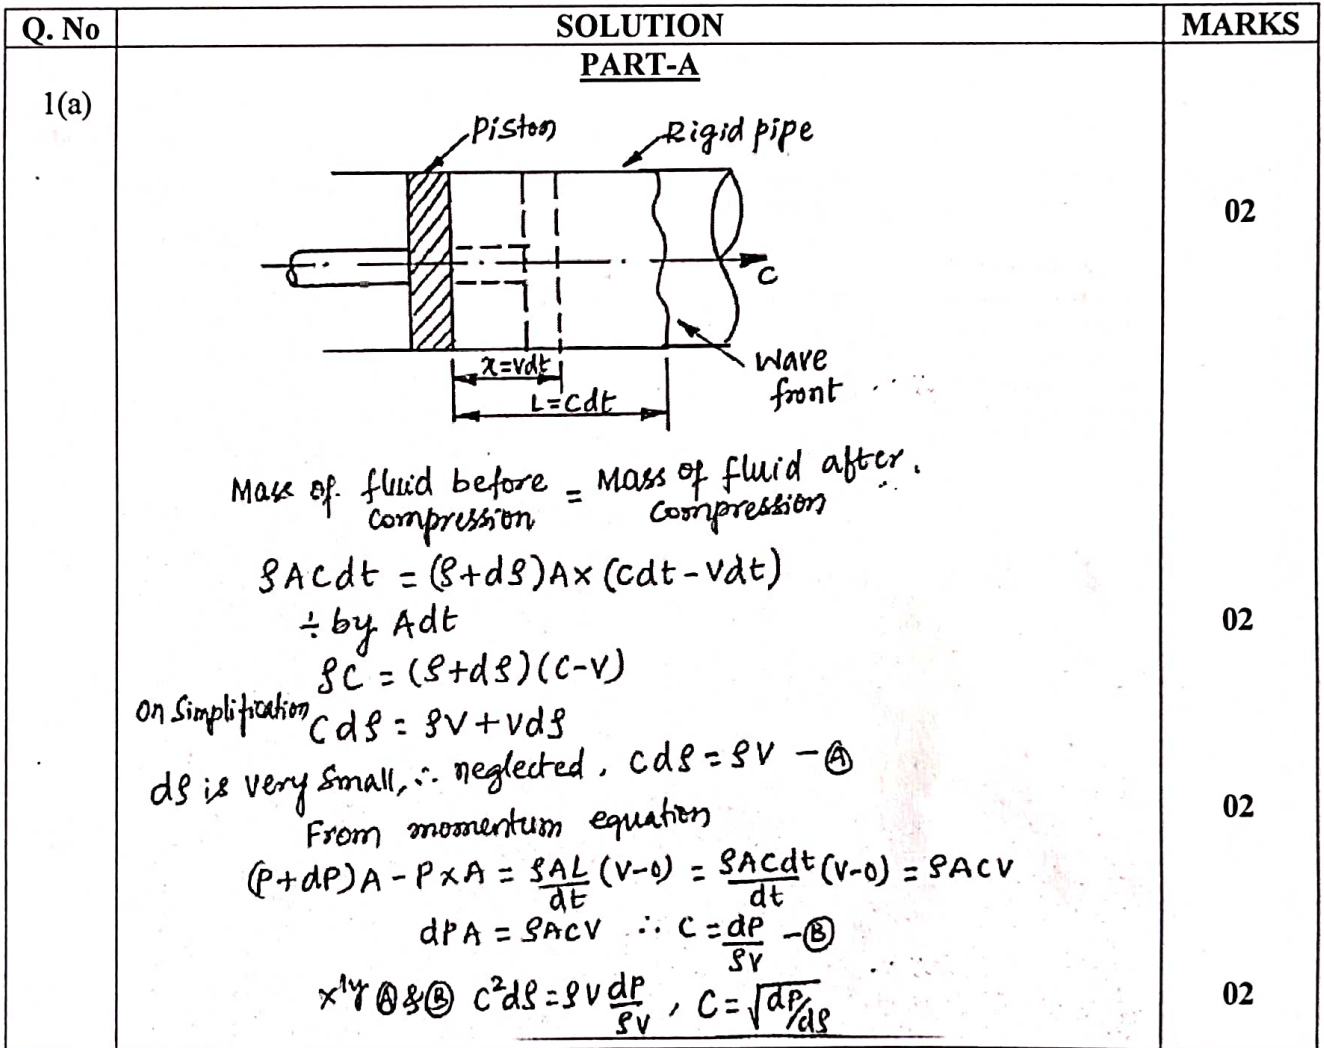 Q. No SOLUTION MARKS
PART-A
1(a)
Piston Rigid pipe
02
C
x=vdt
Wave
front
L=Cdt
Mass of fluid before = Mass of fluid after
compression compression
ρACdt = (ρ+dρ)A×(Cdt-Vdt)
÷ by Adt 02
ρC = (ρ+dρ)(C-V)
On Simplification Cdρ = ρV+Vdρ
dρ is very small, ∴ neglected, Cdρ = ρV -Ⓐ
From momentum equation 02
(P+dP)A-P×A = ρAL/dt (V-0) = ρACdt/dt (V-0) = ρACV
dPA = ρACV ∴ C = dP/ρV -Ⓑ
x^ly Ⓐ&Ⓑ C²dρ = ρV dP/ρV , C = √dP/dρ 02